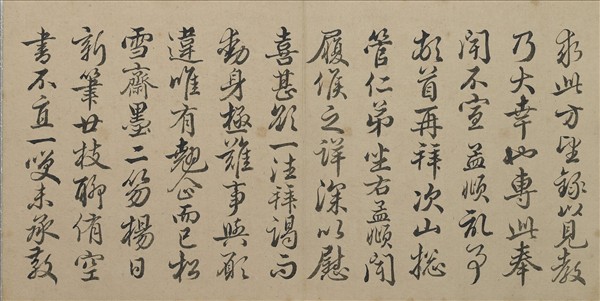 求此方望錄以見教
乃大幸也專此奉
聞不宣孟頫
頓首再拜次山總
管仁弟坐右孟頫聞
履候之詳深以慰
喜甚欲一往拜謁而
動身極難事與願
違唯有翹企而已松
雪齋墨二笏楊日
新筆廿枝聊侑空
書不直一笑未承敦